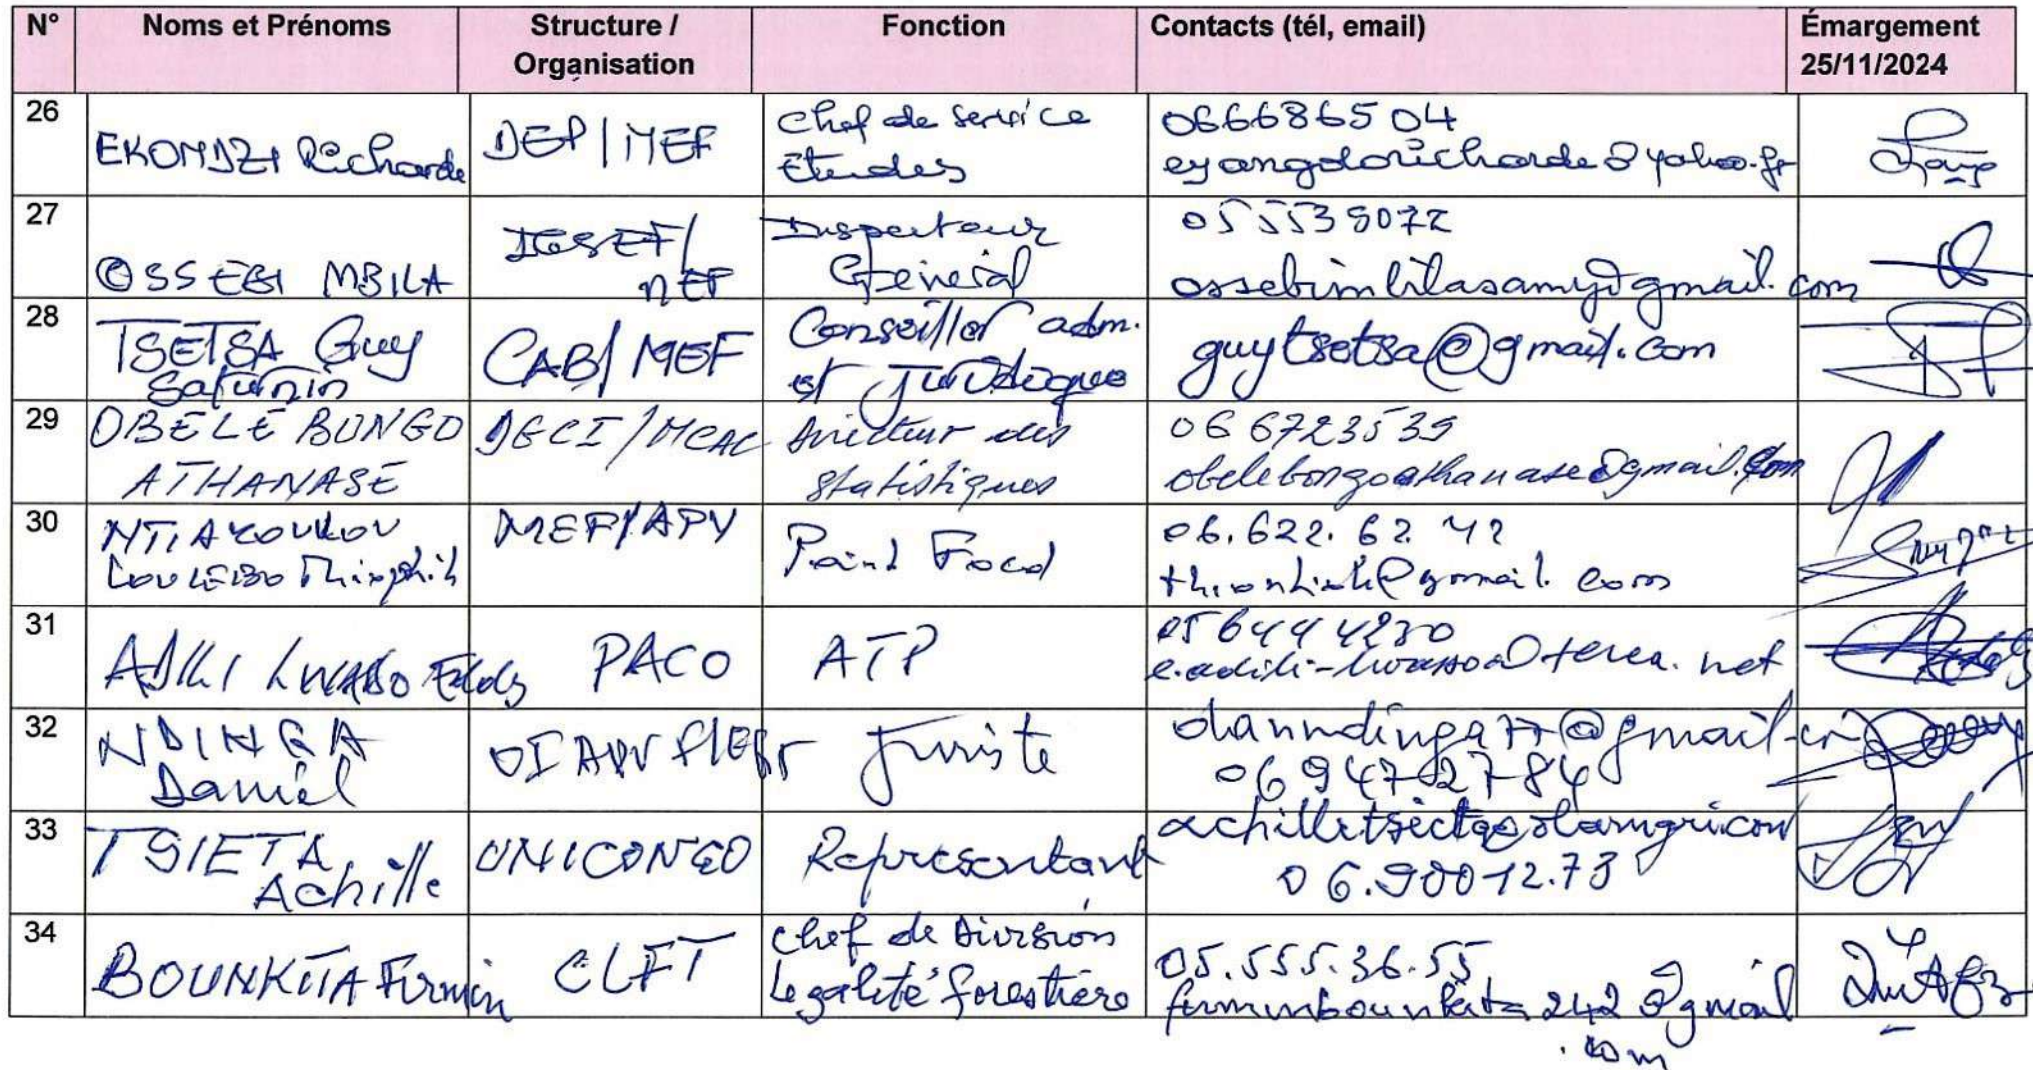 N° Noms et Prénoms Structure / Organisation Fonction Contacts (tél, email) Émargement 25/11/2024
26 EKONDZI Richarde DEP/MEF Chef de service Études 066686504 eyangoloricharde@yahoo.fr
27 OSSEBI MBILA IGSEF/MEF Inspecteur Général ossebimbilasamy@gmail.com
28 TSETSA Guy Saturnin CAB/MEF Conseiller adm. et Juridique guytsetsa@gmail.com
29 OBELE BONGO ATHANASE DGCI/MCAC Directeur des statistiques 066723539 obelebongoathanase@gmail.com
30 NTIAKOULOU LOULEBO MEF/APV Point Focal 06.622.62.42
31 ADILI LWASSO Eddy PACO ATP 056444230 e.adili-lwasso@terea.net
32 NDINGA Daniel Juriste danndinga77@gmail 069472784
33 TSIETA Achille UNICONGO Représentant 06.900 12.73
34 BOUNKITA Firmin CLFT Chef de Division Légalité forestière 05.555.36.55 firminbounkita242@gmail.com